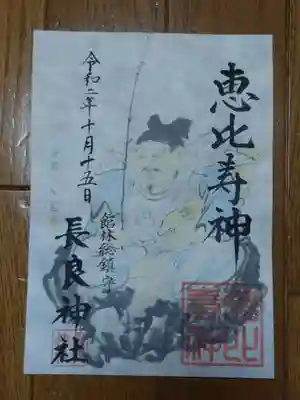 恵比寿神
館林総鎮守
長良神社
令和二年十月十五日